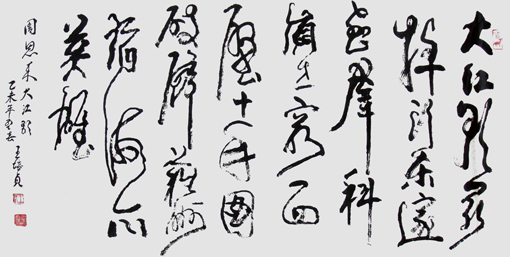 大江歌罢
掉头东邃
密群科
济世穷面
壁十年图
破壁难酬
蹈海亦
英雄
周恩来大江歌
乙未年